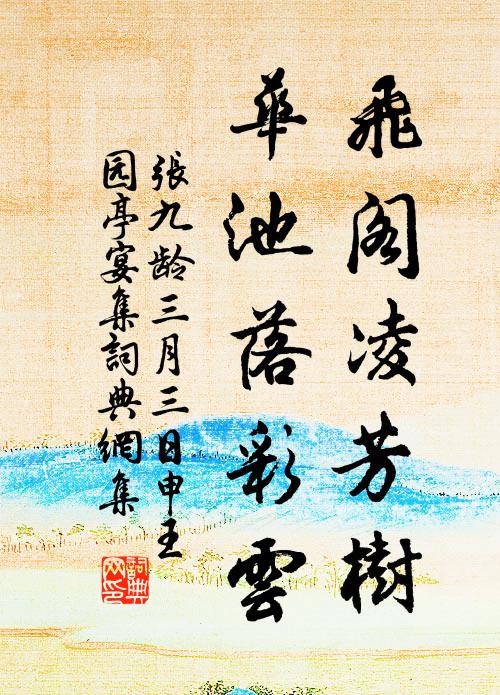 飛阁凌芳樹
華池落彩雲
張九龄三月三日申王
园亭宴集詞典網集
詞典
网印